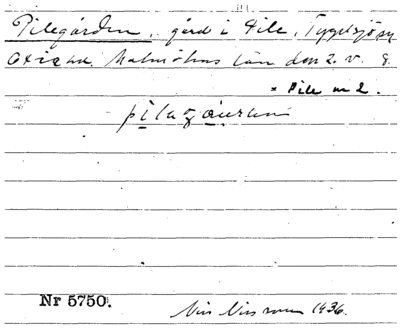 Pilegården, gård i Pile, Tygelsjö sn
Oxie hd. Malmöhus län den 2. v. 8.
* Pile nr 2.
pilagåuren
Nr 5750.
Nils Nilsson 1936.